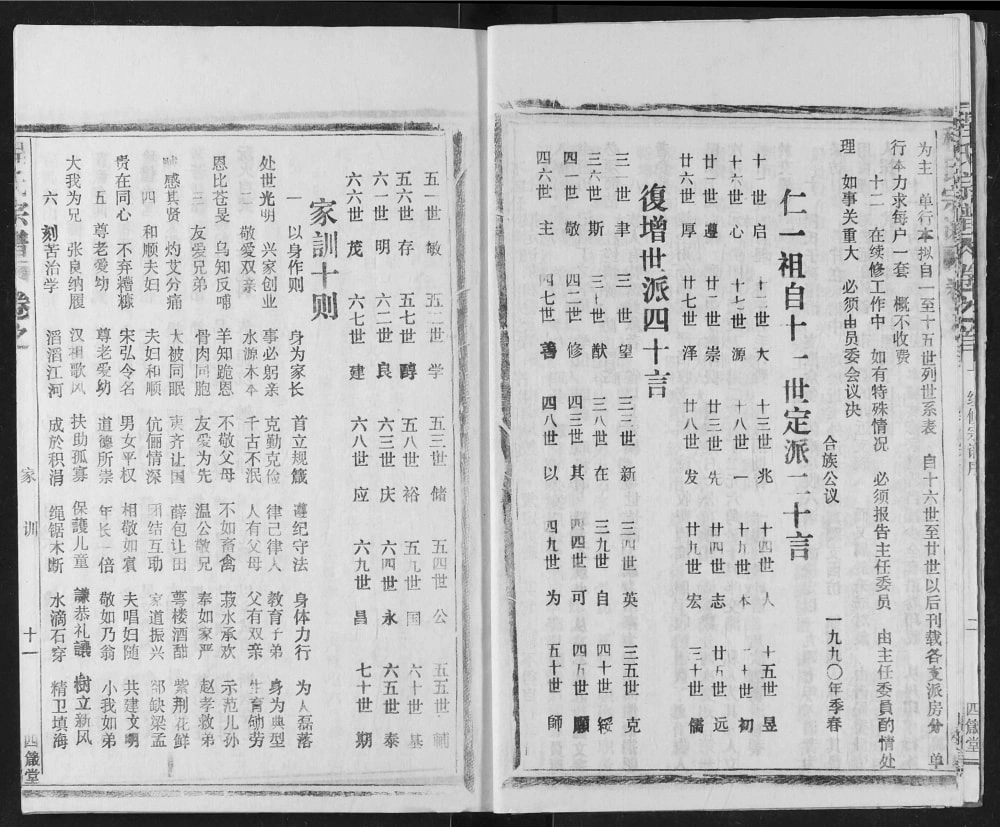 为主 单行本拟自一至十五世列世系表 自十六世至廿世以后刊载各支派房分 单
行本力求每户一套 概不收费
十二 在续修工作中 如有特殊情况 必须报告主任委员 由主任委員酌情处
理 如事关重大 必须由员委会议决
合族公议 一九九〇年季春
仁一祖自十一世定派二十言
十一世启 十二世大 十三世兆 十四世人 十五世昱
十六世心 十七世源 十八世一 十九世本 二十世初
廿一世遵 廿二世崇 廿三世先 廿四世志 廿五世远
廿六世厚 廿七世泽 廿八世发 廿九世宏 三十世儒
復增世派四十言
三一世聿 三二世望 三三世新 三四世英 三五世克
三六世斯 三七世猷 三八世在 三九世自 四十世绥
四一世敬 四二世修 四三世其 四四世可 四五世顯
四六世主 四七世善 四八世以 四九世为 五十世師
五一世敏 五二世学 五三世储 五四世公 五五世輔
五六世存 五七世醇 五八世裕 五九世国 六十世基
六一世明 六二世良 六三世庆 六四世永 六五世泰
六六世茂 六七世建 六八世应 六九世昌 七十世期
家訓十则
一 以身作则 身为家长 首立规箴 遵纪守法 身体力行 为人磊落
处世光明 兴家创业 事必躬亲 克勤克俭 律己律人 教育子弟 身为典型
二 敬爱双亲 水源木本 千古不泯 人有父母 父有双亲 生育劬劳
恩比苍旻 乌知反哺 羊知跪恩 不敬父母 不如畜禽 菽水承欢 示范儿孙
三 友爱兄弟 骨肉同胞 友爱为先 温公敬兄 奉如家严 赵孝救弟
贼感其贤 灼艾分痛 大被同眠 夷齐让国 薛包让田 萼楼酒酣 紫荆花鲜
四 和顺夫妇 夫妇和顺 伉俪情深 团结互助 家道振兴 郤缺梁孟
贵在同心 不弃糟糠 宋弘令名 男女平权 相敬如賓 夫唱妇随 共建文明
五 尊老爱幼 尊老爱幼 道德所崇 年长一倍 敬如乃翁 小我如弟
大我为兄 张良纳屐 汉祖歌风 扶助孤寡 保護儿童 謙恭礼讓 樹立新风
六 刻苦治学 滔滔江河 成於积涓 绳锯木断 水滴石穿 精卫填海
家训 十一 四箴堂